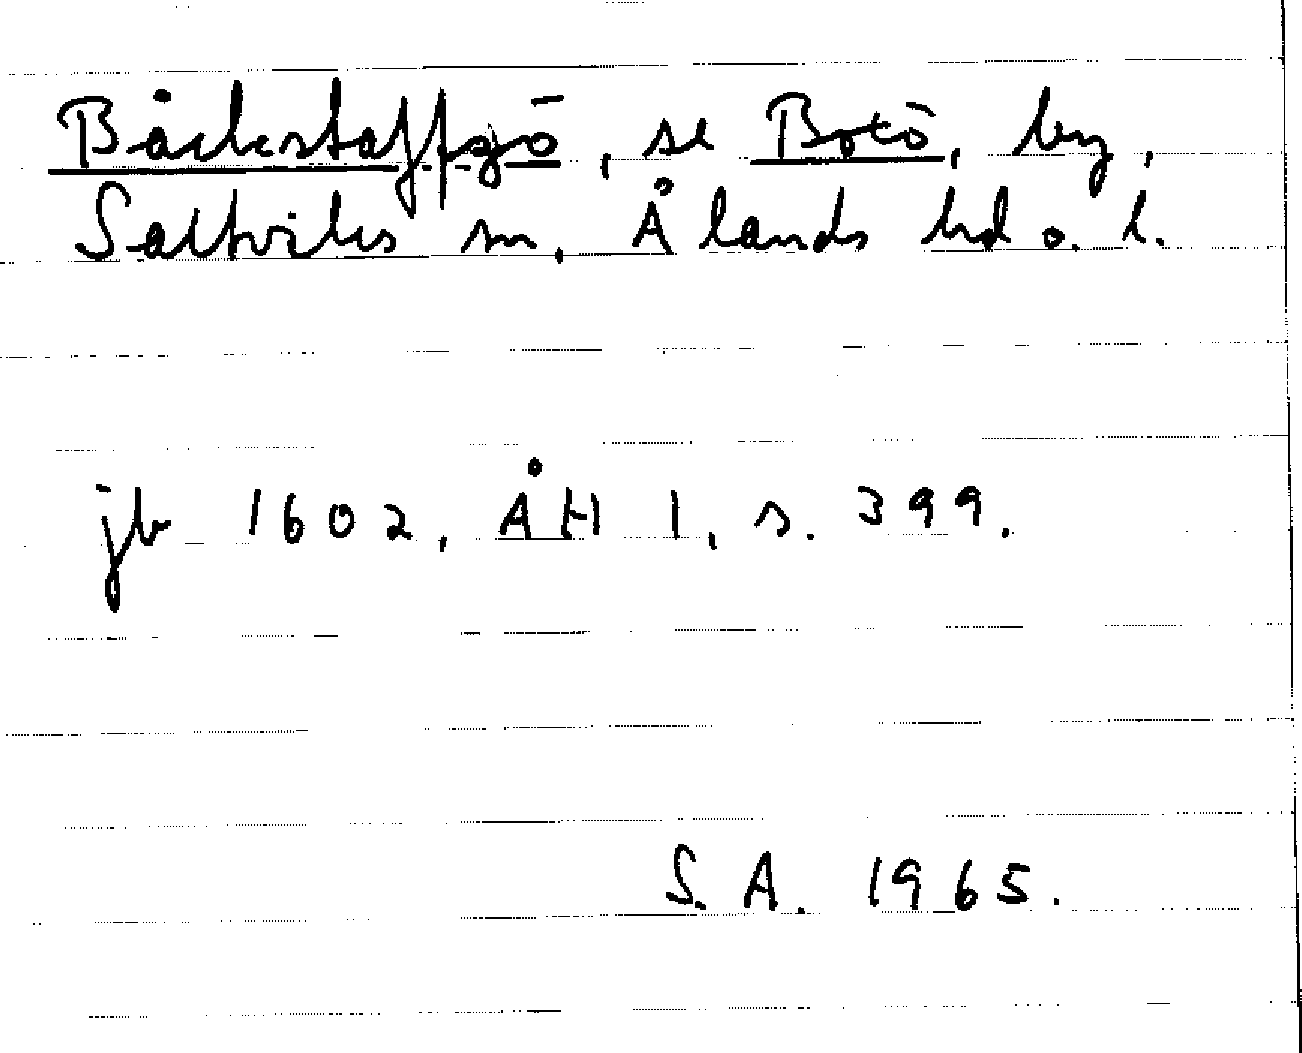 Båckstaffgö, se Botö, by,
Saltviks sn, Ålands hd o. l.
jb 1602, ÅH 1, s. 399.
S. A. 1965.